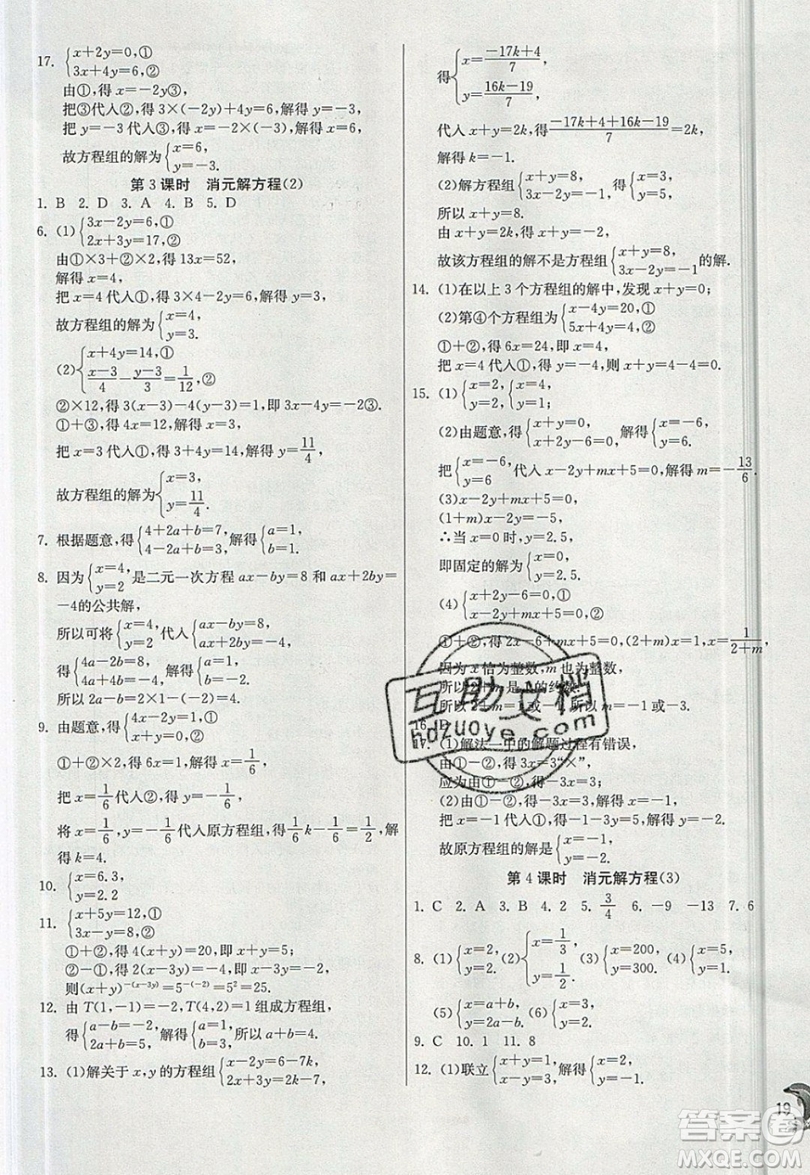 17. {x+2y=0,①
3x+4y=6,②
由①,得 x=-2y③,
把③代入②,得 3×(-2y)+4y=6,解得 y=-3,
把 y=-3 代入①,得 x=-2×(-3)=6,
故方程组的解为{x=6,
y=-3.
第 3 课时 消元解方程(2)
1. B 2. D 3. A 4. B 5. D
6. (1){3x-2y=6,①
2x+3y=17,②
由①×3+②×2,得 13x=52,
解得 x=4,
把 x=4 代入①,得 3×4-2y=6,解得 y=3,
故方程组的解为{x=4,
y=3.
(2){x+4y=14,①
(x-3)/4-(y-3)/3=1/12,②
②×12,得 3(x-3)-4(y-3)=1,即 3x-4y=-2③.
①+③,得 4x=12,解得 x=3,
把 x=3 代入①,得 3+4y=14,解得 y=11/4,
故方程组的解为{x=3,
y=11/4.
7. 根据题意,得{4+2a+b=7,
4-2a+b=3,解得{a=1,
b=1.
8. 因为{x=4,
y=2是二元一次方程 ax-by=8 和 ax+2by=
-4的公共解,
所以可将{x=4,
y=2代入{ax-by=8,
ax+2by=-4,
得{4a-2b=8,
4a+4b=-4,解得{a=1,
b=-2.
所以 2a-b=2×1-(-2)=4.
9. 由题意,得{4x-7y=1,
2x+7y=0,
①+②,得 6x=1,解得 x=1/6,
把 x=1/6代入②,得
将 x=1/6,y=-代入原方程组,得1/6k-1/6=1/2,解
得 k=4.
10. {x=6.3,
y=2.2
11. {x+5y=12,①
3x-y=8,②
①+②,得 4(x+y)=20,即 x+y=5;
②-①,得 2(x-3y)=-4,即 x-3y=-2,
则(x+y)^-(x-3y)=5^-(-2)=5^2=25.
12. 由 T(1,-1)=-2,T(4,2)=1组成方程组,
得{a-b=-2,
2a+b=5,解得{a=1,
b=3,所以 a+b=4.
13. (1)解关于 x,y 的方程组{x-2y=6-7k,
2x+3y=-8+
得{x=(-17k+4)/7,
y=(16k-19)/7,
代入 x+y=2k,得(-17k+4+16k-19)/7=2k,
解得 k=-1.
(2)解方程组
所以 x+y=8.
又
故该方程组的解不是方程组{x+y=8,
3x-2y=-1的解.
14. (1)在以上 3 个方程组的解中,发现 x+y=0;
(2)第④个方程组为{x-4y=20,①
5x+4y=4,②
①+②,得 6x=24,即 x=4,
把 x=4代入①,得 y=-4,则 x+y=4-4=0.
15. (1){x=2,
y=2;{x=4,
y=1;
(2)由题意,得{x+y=0,
x+2y=6,解得{x=-6,
y=6,
把{x=-6,
y=6代入 x-2y+mx+5=0,解得 m=-13/6.
(3)x-2y+mx+5=0,
(1+m)x-2y=-5,
∴当 x=0 时,y=2.5,
即固定的解为{x=0,
y=2.5.
(4){x+2y-6=0,①
x-2y+mx+5=0,②
①+②,得 2x-6+mx+5=0,(2+m)x=1,x=1/(2+m),
因为 x 恰为整数,m 也为整数,
所以 2+m 是 1 的约数,
所以 2+m=1 或-1,所以 m=-1 或-3.
16. D
17. (1)解法一中的解题过程有错误,
由①-②,得 3x=3“×”,
应为由①-②,得-3x=3;
(2)由①-②,得-3x=3,解得 x=-1,
把 x=-1代入①,得-1-3y=5,解得 y=-2.
故原方程组的解是{x=-1,
y=-2.
第 4 课时 消元解方程(3)
1. C 2. A 3. B 4. 2 5. 3/4 6. -9 -13 7. 6
8. (1){x=2,
y=2. (2){x=1/3,
y=1/2. (3){x=200,
y=300. (4){x=5,
y=1.
(5){x=a+b,
y=2a-b.
9. C 10. 1 11. 8
12. (1)联立{x+y=1,
x-y=3,
互助文档
hdzuoye.com
答案圈
MXQE.COM
19